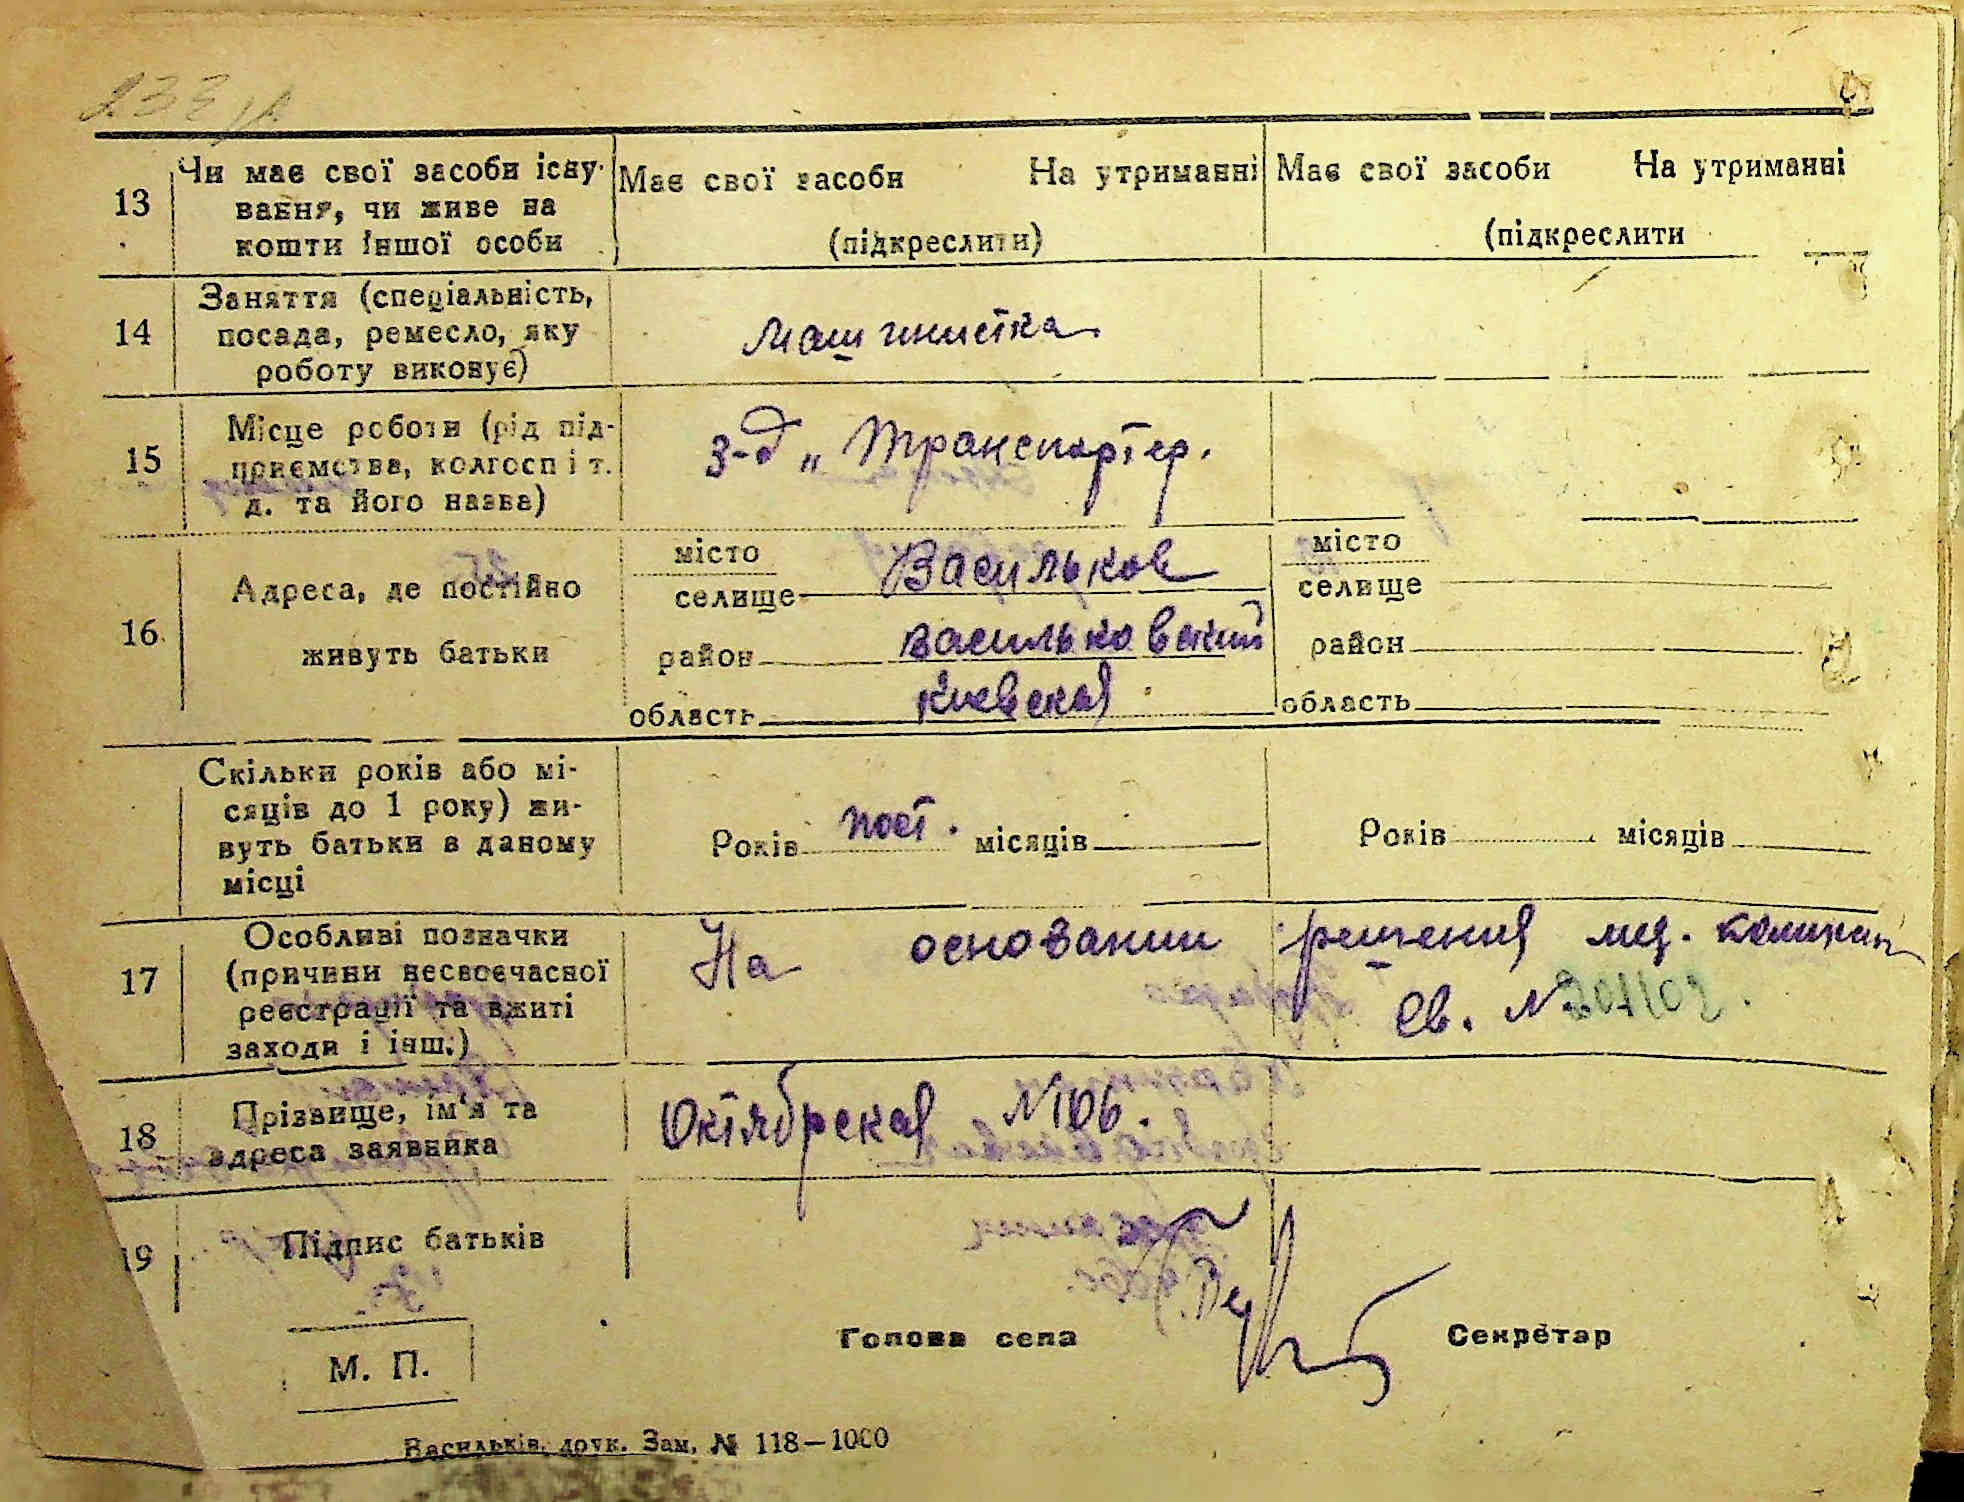 13 Чи має свої засоби існу- Має свої засоби На утриманні Має свої засоби На утриманні
вання, чи живе на
кошти іншої особи (підкреслити) (підкреслити
14 Заняття (спеціальність,
посада, ремесло, яку машинистка
роботу виконує)
15 Місце роботи (рід під- з-д „Транспортер.
приємства, колгосп і т.
д. та його назва)
16 Адреса, де постійно
живуть батьки
місто Васильков місто
селище селище
район васильковский район
область киевская область
Скільки років або мі-
сяців до 1 року) жи-
вуть батьки в даному Років пост. місяців Років місяців
місці
17 Особливі позначки На основании решения мед. комиссии
(причини несвоєчасної
реєстрації та вжиті Св. №
заходи і інш.)
18 Прізвище, ім'я та Октябрская №106.
адреса заявника
19 Підпис батьків
Голова села Секретар
М. П.
Васильків, друк. Зам. № 118—1000